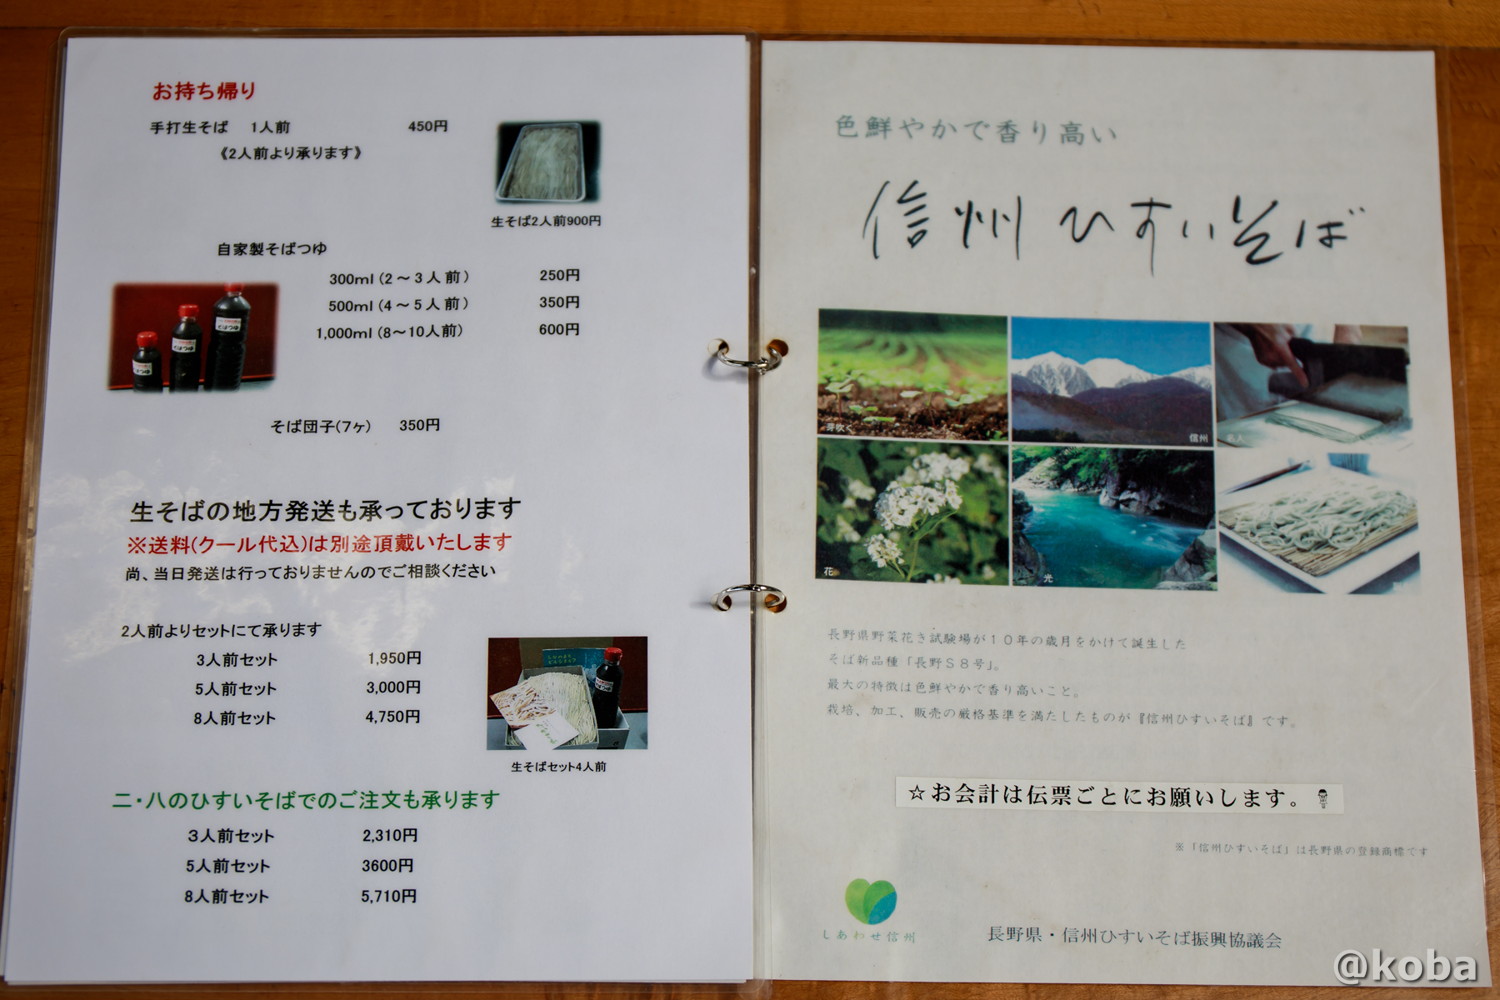 お持ち帰り
手打生そば 1人前 450円
《2人前より承ります》
生そば2人前900円
自家製そばつゆ
300ml(2～3人前) 250円
500ml(4～5人前) 350円
1,000ml(8～10人前) 600円
そばつゆ
そばつゆ
そば団子(7ヶ) 350円
生そばの地方発送も承っております
※送料(クール代込)は別途頂戴いたします
尚、当日発送は行っておりませんのでご相談ください
2人前よりセットにて承ります
3人前セット 1,950円
5人前セット 3,000円
8人前セット 4,750円
生そばセット4人前
二・八のひすいそばでのご注文も承ります
3人前セット 2,310円
5人前セット 3600円
8人前セット 5,710円
色鮮やかで香り高い
信州ひすいそば
芽吹く
信州
名人
花
光
長野県野菜花き試験場が10年の歳月をかけて誕生した
そば新品種「長野S8号」。
最大の特徴は色鮮やかで香り高いこと。
栽培、加工、販売の厳格基準を満たしたものが『信州ひすいそば』です。
☆お会計は伝票ごとにお願いします。
※「信州ひすいそば」は長野県の登録商標です
しあわせ信州
長野県・信州ひすいそば振興協議会
@koba